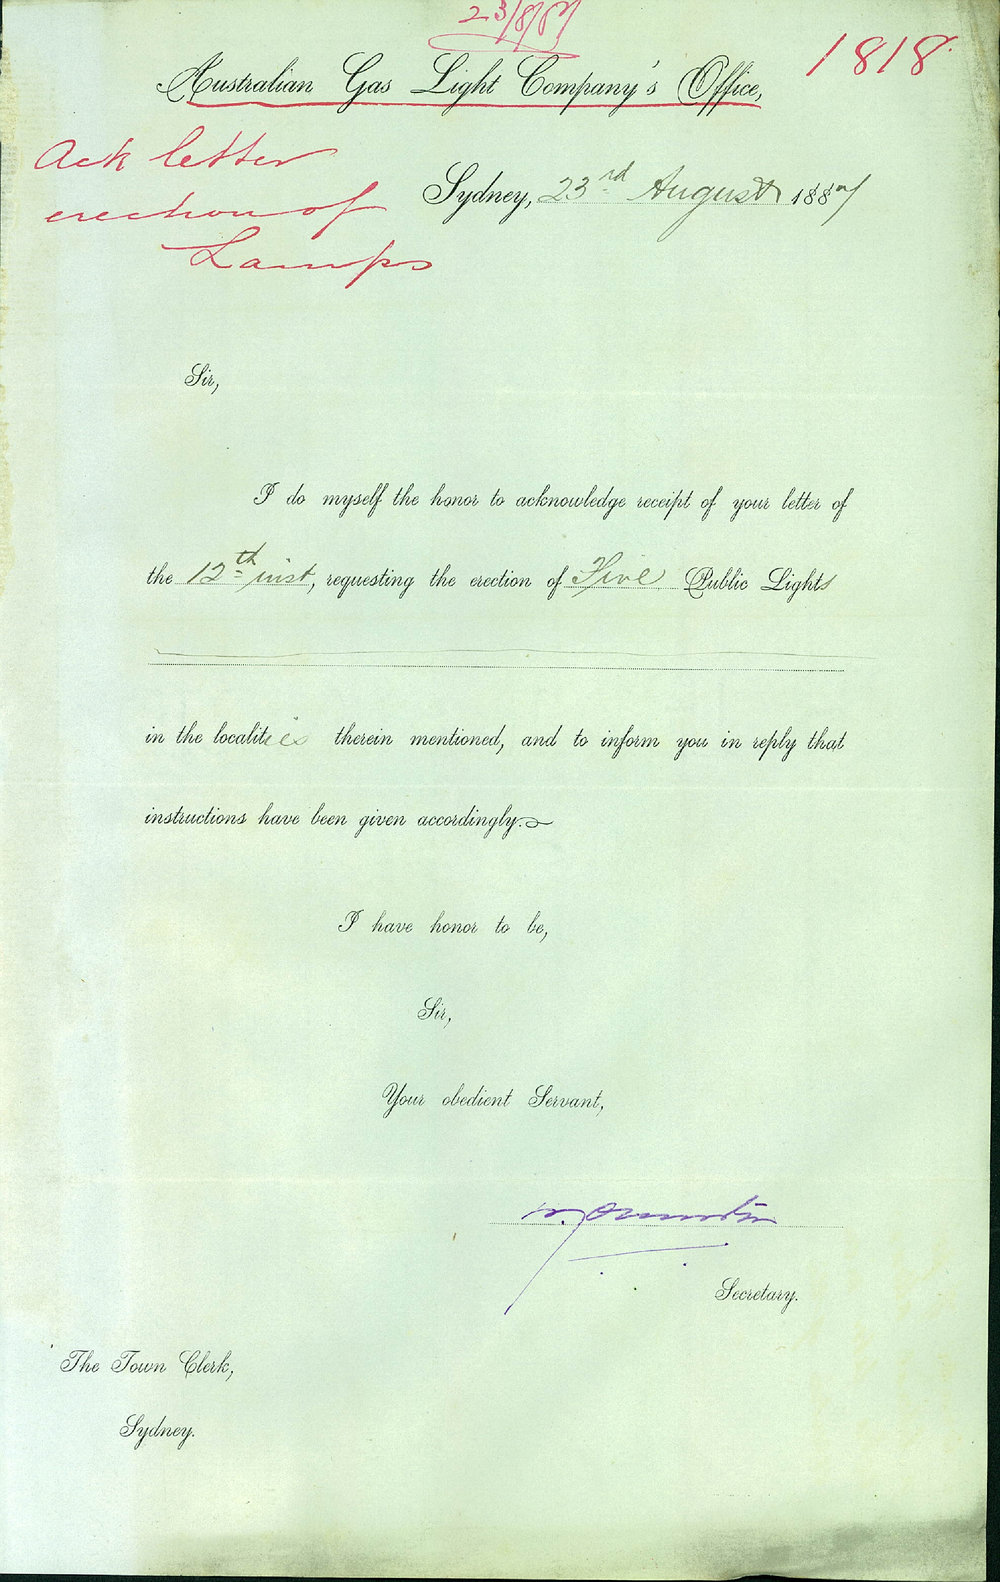 23/8/87
1818
Australian Gas Light Company's Office,
Ack letter
erection of
Lamps
Sydney, 23rd August 1887
Sir,
I do myself the honor to acknowledge receipt of your letter of
the 12th inst, requesting the erection of Five Public Lights
in the localities therein mentioned, and to inform you in reply that
instructions have been given accordingly.
I have honor to be,
Sir,
Your obedient Servant,
Secretary.
The Town Clerk,
Sydney.